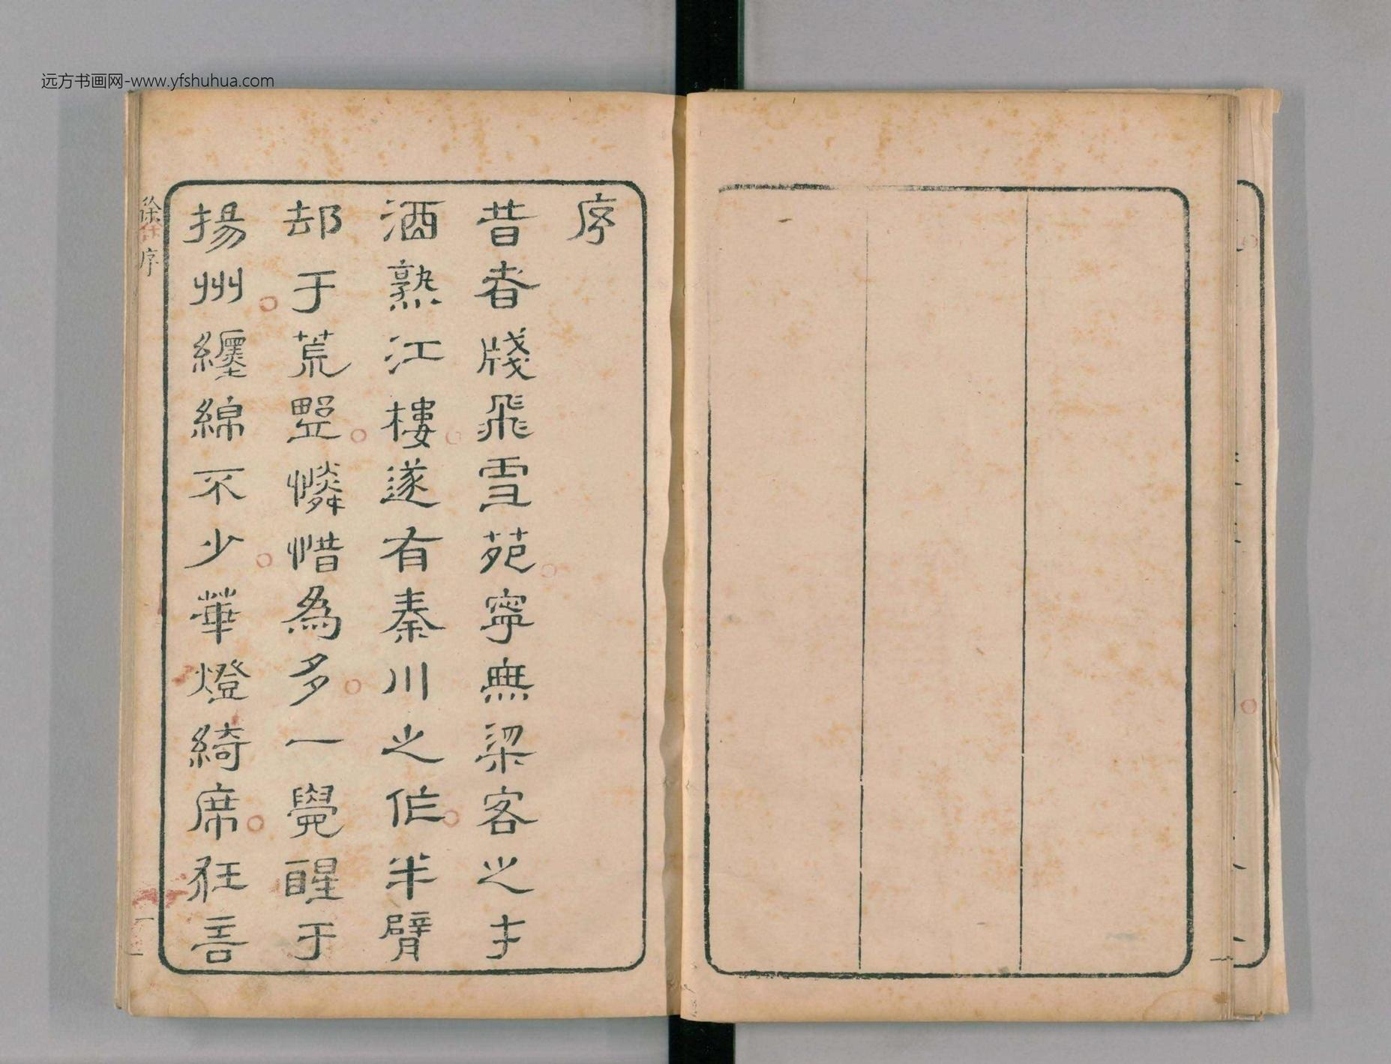 远方书画网-www.yfshuhua.com
序
昔者牋飛雪苑寧無梁客之才
酒熟江樓遂有秦川之作半臂
却于荒野憐惜為多一覺醒于
揚州纏綿不少華燈綺席狂言
序
一